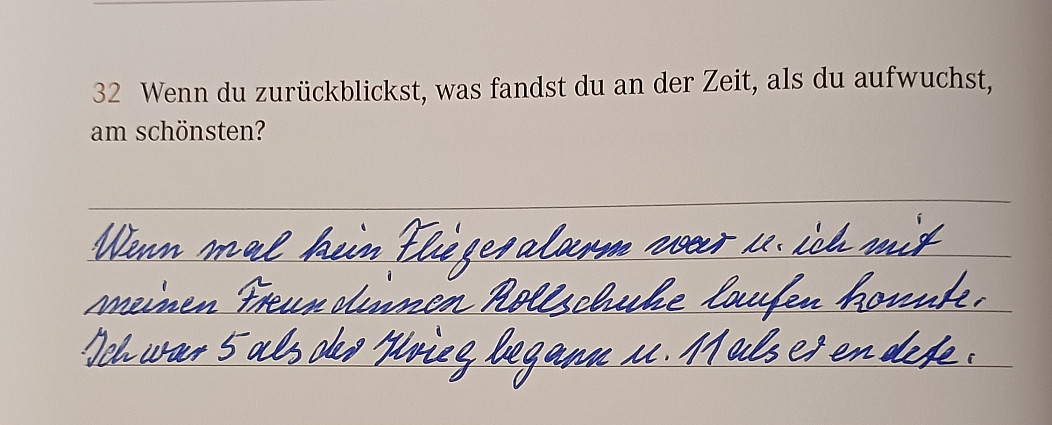 32 Wenn du zurückblickst, was fandst du an der Zeit, als du aufwuchst,
am schönsten?
Wenn mal kein Fliegeralarm war u. ich mit
meinen Freundinnen Rollschuhe laufen konnte.
Ich war 5 als der Krieg begann u. 11 als er endete.